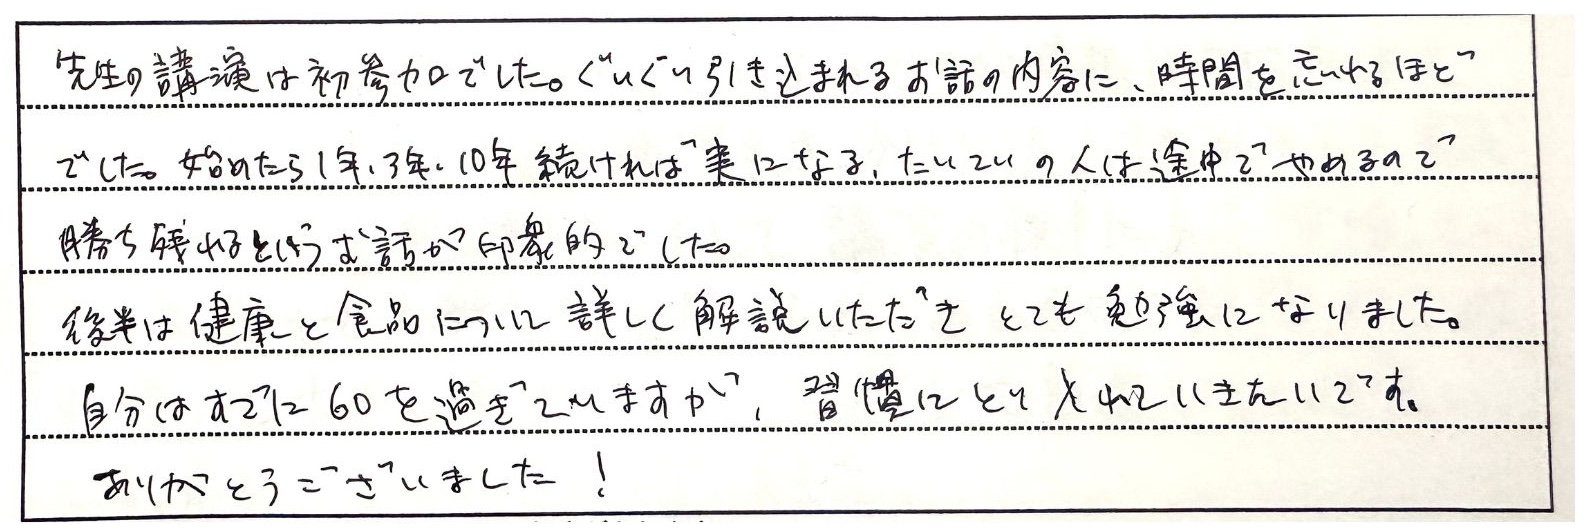 先生の講演は初参加でした。ぐいぐい引き込まれるお話の内容に、時間を忘れるほど
でした。始めたら1年、3年、10年続ければ実になる、たいていの人は途中でやめるので
勝ち残れるというお話が印象的でした。
後半は健康と食品について詳しく解説いただきとても勉強になりました。
自分はすでに60を過ぎていますが、習慣にとり入れていきたいです。
ありがとうございました!